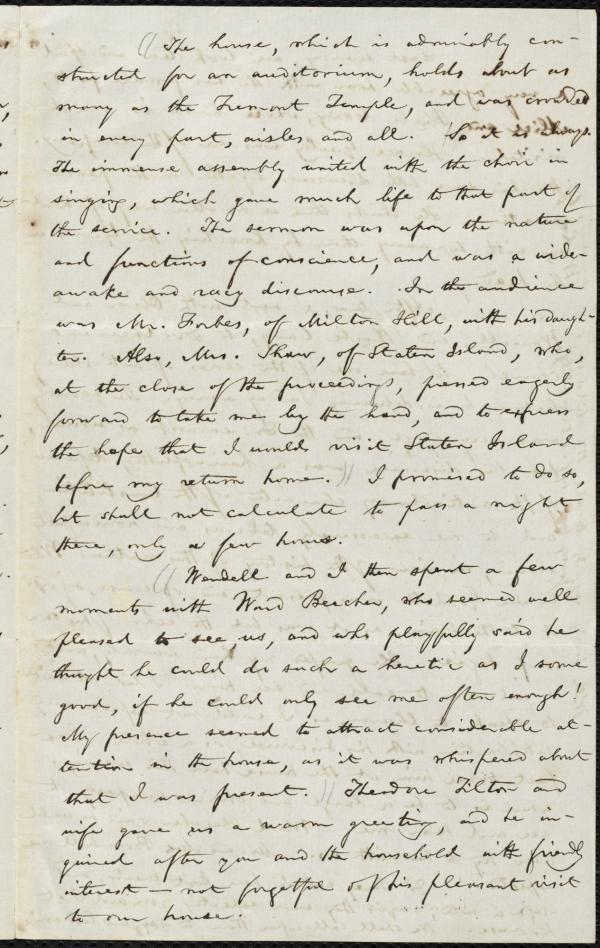 (( The house, which is admirably con-
structed for an auditorium, holds about as
many as the Tremont Temple, and was crowded
in every part, aisles and all. So it is always.
The immense assembly united with the choir in
singing, which gave much life to that part of
the service. The sermon was upon the nature
and functions of conscience, and was a wide-
awake and racy discourse. In the audience
was Mr. Forbes, of Milton Hill, with his daugh-
ter. Also, Mrs. Shaw, of Staten Island, who,
at the close of the proceedings, pressed eagerly
forward to take me by the hand, and to express
the hope that I would visit Staten Island
before my return home. )) I promised to do so,
but shall not calculate to pass a night
there, only a few hours.
(( Wendell and I then spent a few
moments with Ward Beecher, who seemed well
pleased to see us, and who playfully said he
thought he could do such a heretic as I some
good, if he could only see me often enough!
My presence seemed to attract considerable at-
tention in the house, as it was whispered about
that I was present. )) Theodore Tilton and
wife gave us a warm greeting, and he in-
quired after you and the household with friendly
interest — not forgetful of his pleasant visit
to our house.